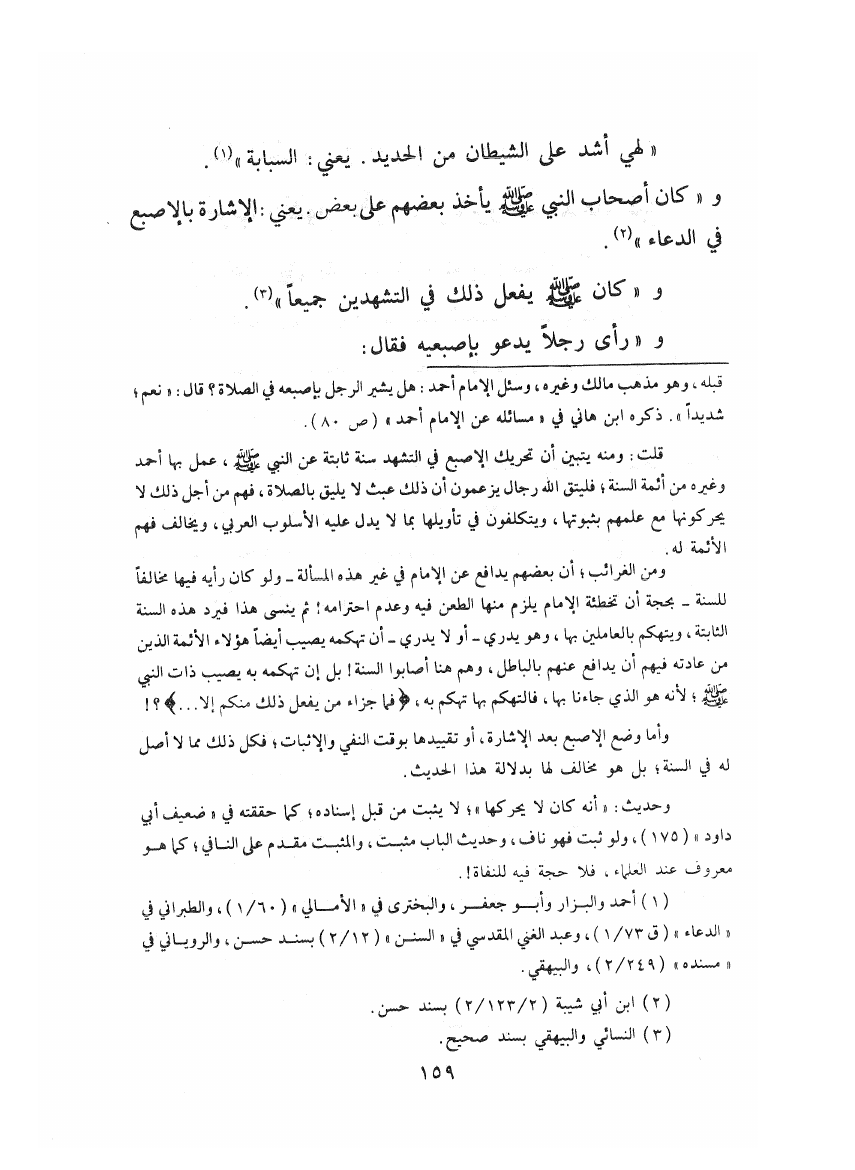 « لهي أشد على الشيطان من الحديد . يعني : السبابة »(١) .
و « كان أصحاب النبي ﷺ يأخذ بعضهم على بعض . يعني : الإشارة بالإصبع
في الدعاء »(٢) .
و « كان ﷺ يفعل ذلك في التشهدين جميعاً »(٣) .
و « رأى رجلاً يدعو بإصبعيه فقال :
قبله ، وهو مذهب مالك وغيره ، وسئل الإمام أحمد : هل يشير الرجل بإصبعه في الصلاة ؟ قال : « نعم ؛
شديداً » . ذكره ابن هاني في « مسائله عن الإمام أحمد » ( ص ٨٠ ) .
قلت : ومنه يتبين أن تحريك الإصبع في التشهد سنة ثابتة عن النبي ﷺ ، عمل بها أحمد
وغيره من أئمة السنة ؛ فليتق الله رجال يزعمون أن ذلك عبث لا يليق بالصلاة ، فهم من أجل ذلك لا
يحركونها مع علمهم بثبوتها ، ويتكلفون في تأويلها بما لا يدل عليه الأسلوب العربي ، ويخالف فهم
الأئمة له .
ومن الغرائب ؛ أن بعضهم يدافع عن الإمام في غير هذه المسألة ـ ولو كان رأيه فيها مخالفاً
للسنة ـ بحجة أن تخطئة الإمام يلزم منها الطعن فيه وعدم احترامه ! ثم ينسى هذا فيرد هذه السنة
الثابتة ، ويتهكم بالعاملين بها ، وهو يدري ـ أو لا يدري ـ أن تهكمه يصيب أيضاً هؤلاء الأئمة الذين
من عادته فيهم أن يدافع عنهم بالباطل ، وهم هنا أصابوا السنة ! بل إن تهكمه به يصيب ذات النبي
ﷺ ؛ لأنه هو الذي جاءنا بها ، فالتهكم بها تهكم به ، ﴿ فما جزاء من يفعل ذلك منكم إلا ... ﴾ ؟ !
وأما وضع الإصبع بعد الإشارة ، أو تقييدها بوقت النفي والإثبات ؛ فكل ذلك مما لا أصل
له في السنة ؛ بل هو مخالف لها بدلالة هذا الحديث .
وحديث : « أنه كان لا يحركها » ؛ لا يثبت من قبل إسناده ؛ كما حققته في « ضعيف أبي
داود » ( ١٧٥ ) ، ولو ثبت فهو ناف ، وحديث الباب مثبت ، والمثبت مقدم على النافي ؛ كما هو
معروف عند العلماء ، فلا حجة فيه للنفاة ! .
( ١ ) أحمد والبزار وأبو جعفر ، والبختري في « الأمالي » ( ١/٦٠ ) ، والطبراني في
« الدعاء » ( ق ١/٧٣ ) ، وعبد الغني المقدسي في « السنن » ( ٢/١٢ ) بسند حسن ، والروياني في
« مسنده » ( ٢/٢٤٩ ) ، والبيهقي .
( ٢ ) ابن أبي شيبة ( ٢/١٢٣/٢ ) بسند حسن .
( ٣ ) النسائي والبيهقي بسند صحيح .
١٥٩